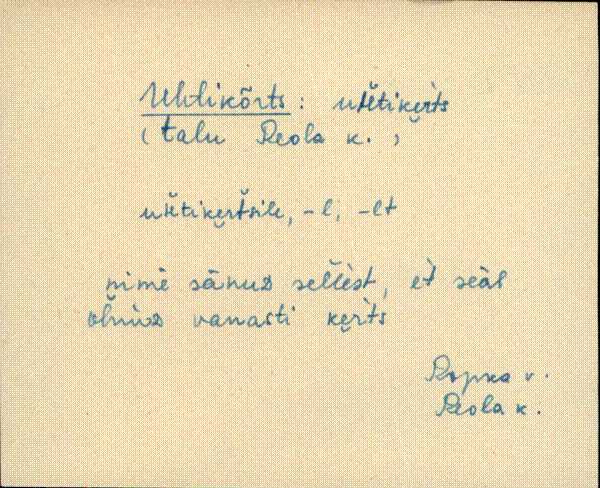 Uhtikõrts: uhtikerts
(talu Reola k.)
uhtikertsile, -l, -lt
nimè sānuᴅ sellèst, èt seäl
olnuᴅ vanasti kerts
Ropka v.
Reola k.